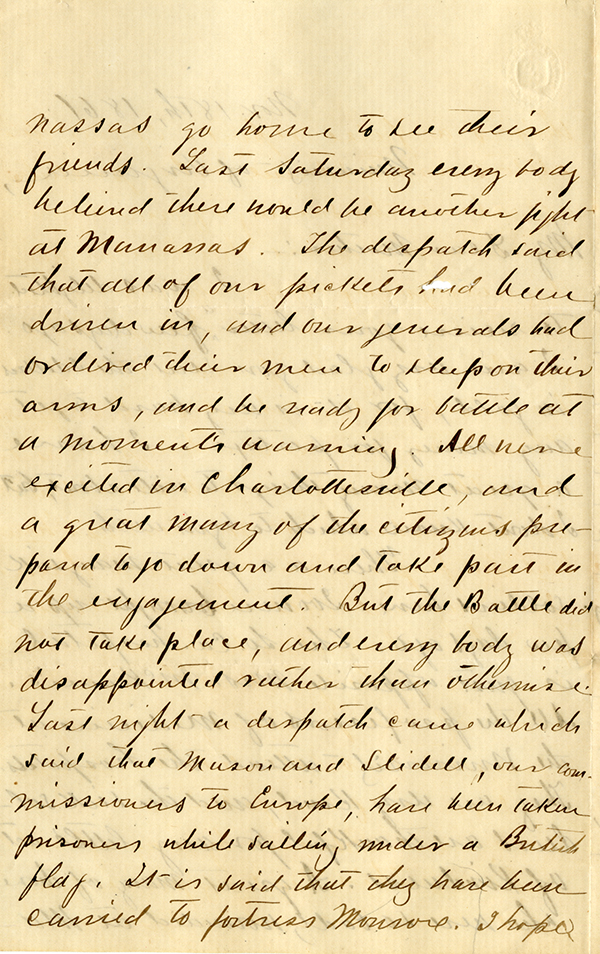 nassas go home to see their
friends. Last Saturday every body
believed there would be another fight
at Manassas. The despatch said
that all of our pickets had been
driven in, and our generals had
ordered their men to sleep on their
arms, and be ready for battle at
a moment's warning. All were
excited in Charlottesville, and
a great many of the citizens pre-
pared to go down and take part in
the engagement. But the Battle did
not take place, and every body was
disappointed rather than otherwise.
Last night a despatch came which
said that Mason and Slidell, our com-
missioners to Europe, have been taken
prisoners while sailing under a British
flag. It is said that they have been
carried to fortress Monroe. I hope